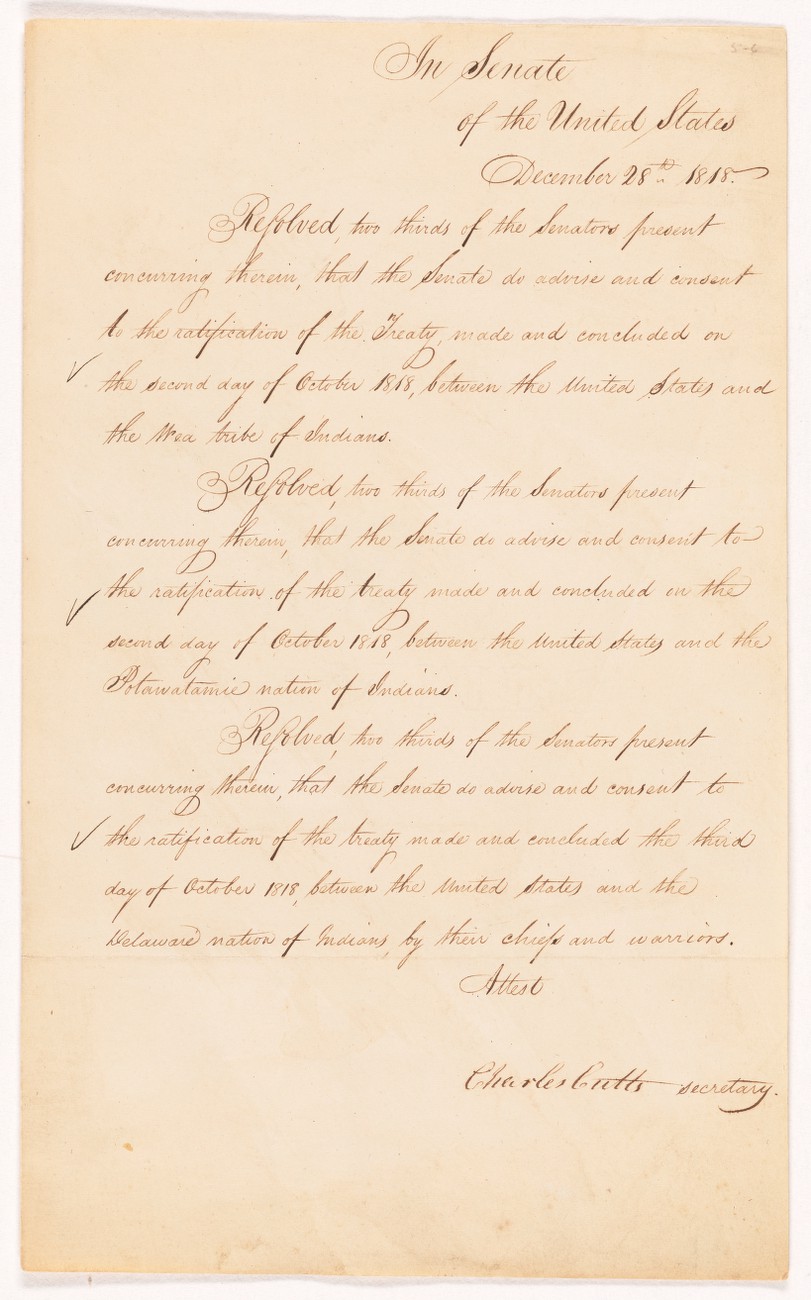 5-6
In Senate
of the United States
December 28th 1818.
Resolved, two thirds of the Senators present
concurring therein, that the Senate do advise and consent
to the ratification of the Treaty, made and concluded on
the second day of October 1818, between the United States and
the Wea tribe of Indians.
Resolved, two thirds of the Senators present
concurring therein, that the Senate do advise and consent to
the ratification of the treaty made and concluded on the
second day of October 1818, between the United States and the
Potawatamie nation of Indians.
Resolved, two thirds of the Senators present
concurring therein, that the Senate do advise and consent to
the ratification of the treaty made and concluded the third
day of October 1818, between the United States and the
Delaware nation of Indians, by their chiefs and warriors.
Attest
Charles Cutts secretary.